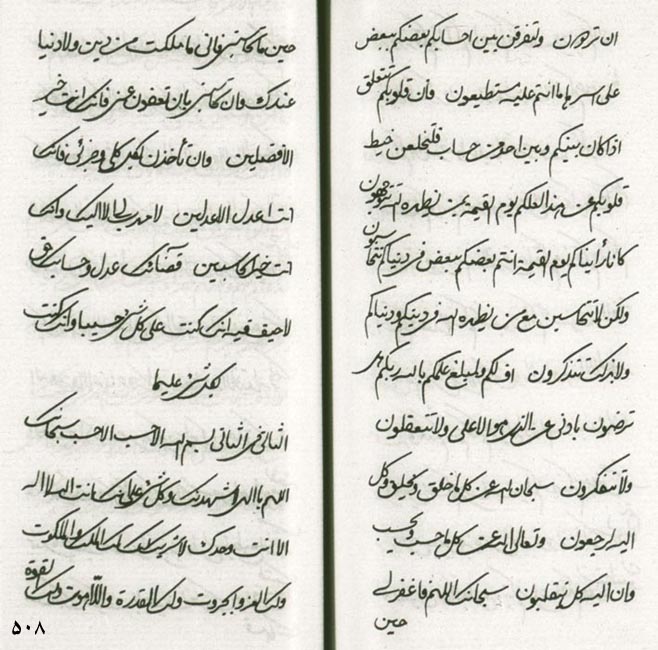 ان ترون ولتفرقن بين احسابكم بعضكم ببعض
على اسر ما انتم عليه مستطيعون وان قلوبكم تتعلق
اذا كان بينكم وبين احد من حساب فلتخلصن خيط
قلوبكم عن هذا لعلكم يوم القيمة بمن يظهره الله
كانا رأيناكم يوم القيمة انتم بعضكم ببعض في دنياكم
ولكن لا تتحاسبن مع من يظهره الله في دينكم ودنياكم
ولا بذلك تتذكرون اف لكم ولمبلغ علمكم بالله ربكم
ترضون بادنى عن الذي هو الاعلى ولا تتعقلون
ولا تتفكرون سبحان الله عن كل ما خلق ويخلق وكل
اليه ليرجعون وتعالى الله عن كل ما حسب ويحسب
وان اليه كل ينقلبون سبحانك اللهم فاغفر لي
حين
حين ما تحاسبني فاني ما ملكت من دين ولا دنيا
عندك وان تحاسبني بان تعفون عني فانك انت خير
الافضلين وان تأخذن لكل كلي وجزئي فانك
انت اعدل الاعدلين لا مهرب لي الا اليك وانك
انت خير الحاسبين قضائك عدل وحسابك حق
لا حيف فيه انك كنت على كل شئ حسيبا وانك كنت
بكل شئ عليما
الثاني في الثاني بسم الله الاحسب الاحسب سبحانك
اللهم يا الهي لاشهدنك وكل شئ على انك انت الله لا اله
الا انت وحدك لا شريك لك لك الملك والملكوت
ولك العز والجبروت ولك القدرة واللاهوت ولك القوة
٥٠٨